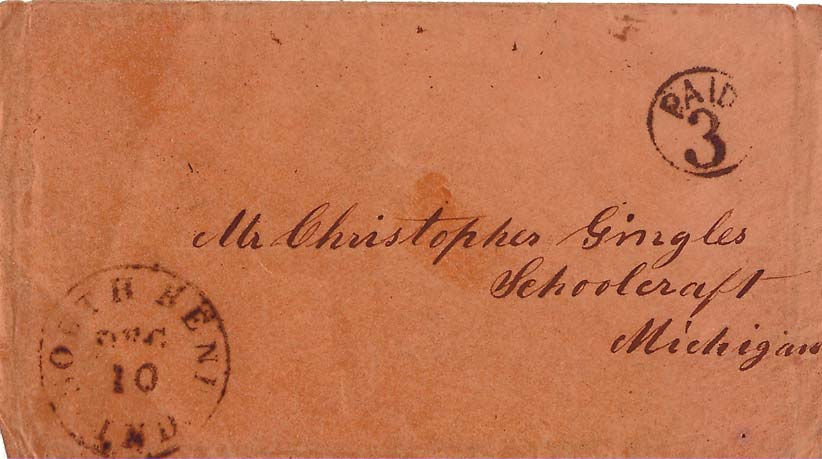 PAID
3
Mr Christopher Gingles
Schoolcraft
Michigan
SOUTH BEND
DEC
10
IND